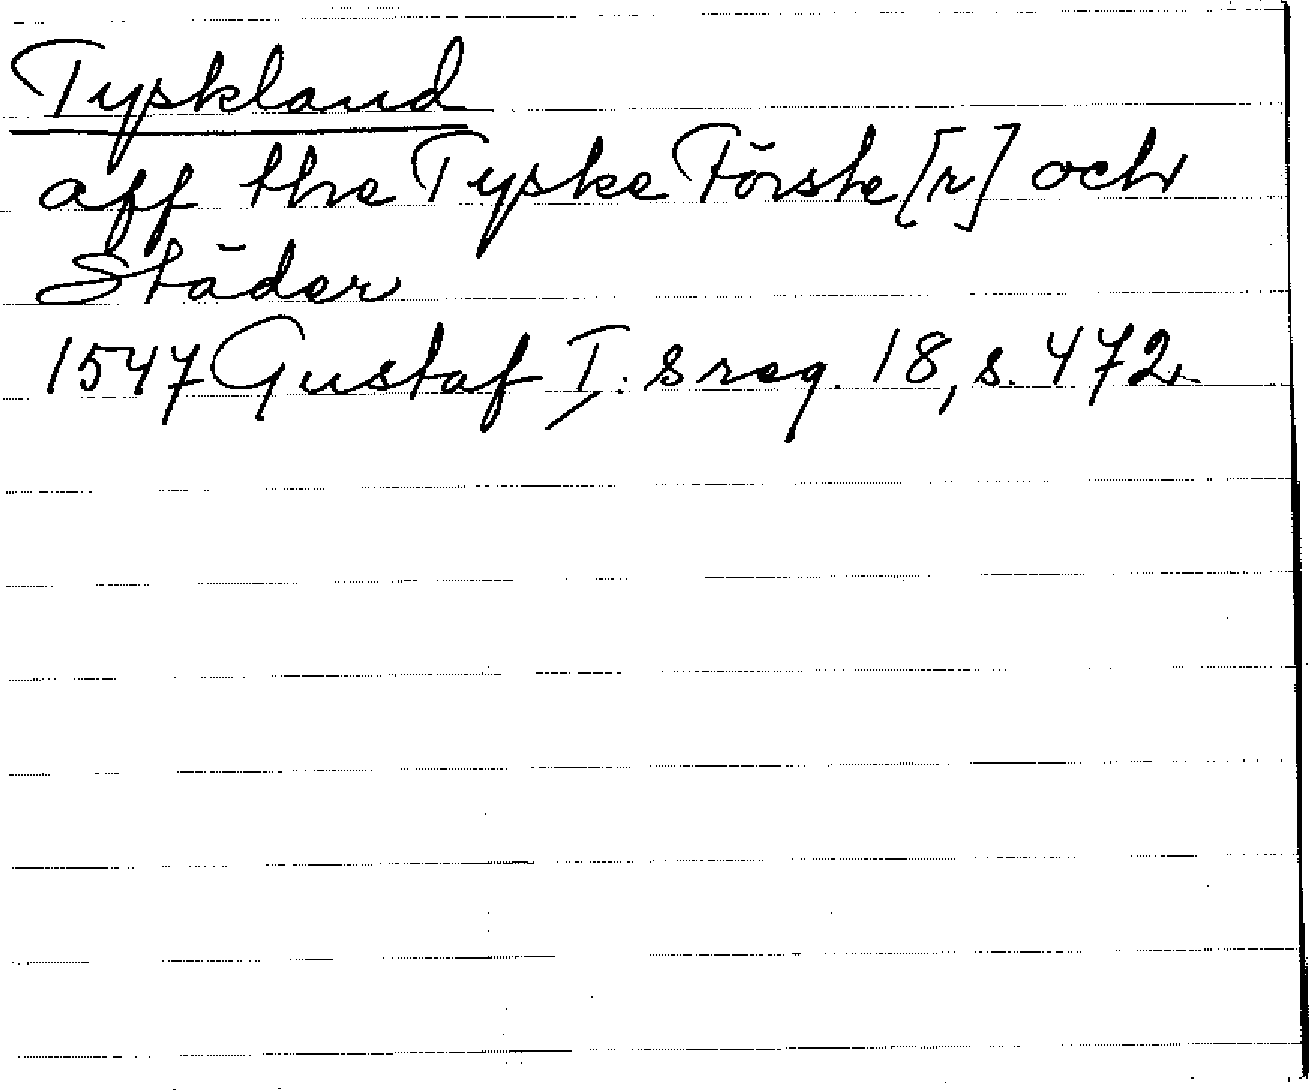 Tyskland
aff the Tyske Förste[r] och
Städer
1547 Gustaf I:s reg. 18, s. 472